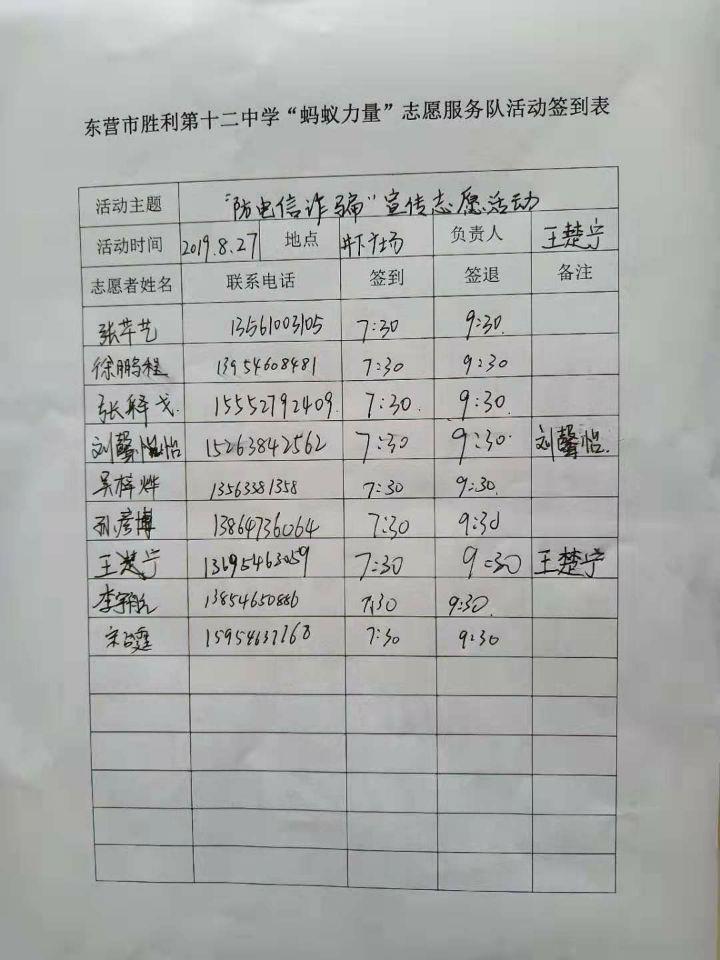 东营市胜利第十二中学“蚂蚁力量”志愿服务队活动签到表
活动主题 “防电信诈骗”宣传志愿活动
活动时间 2019.8.27 地点 井下广场 负责人 王楚宁
志愿者姓名 联系电话 签到 签退 备注
张芊艺 13561003105 7:30 9:30.
徐鹏程 13954608481 7:30 9:30
张释戈. 15552792409. 7:30. 9:30.
刘馨怡 15263842562 7:30 9:30. 刘馨怡.
吴梓烨 1356381358 7:30 9:30.
孙彦博 13864736064 7:30 9:30
王楚宁 13695463059 7:30 9:30 王楚宁
13854650886 7:30 9:30.
7:30 9:30